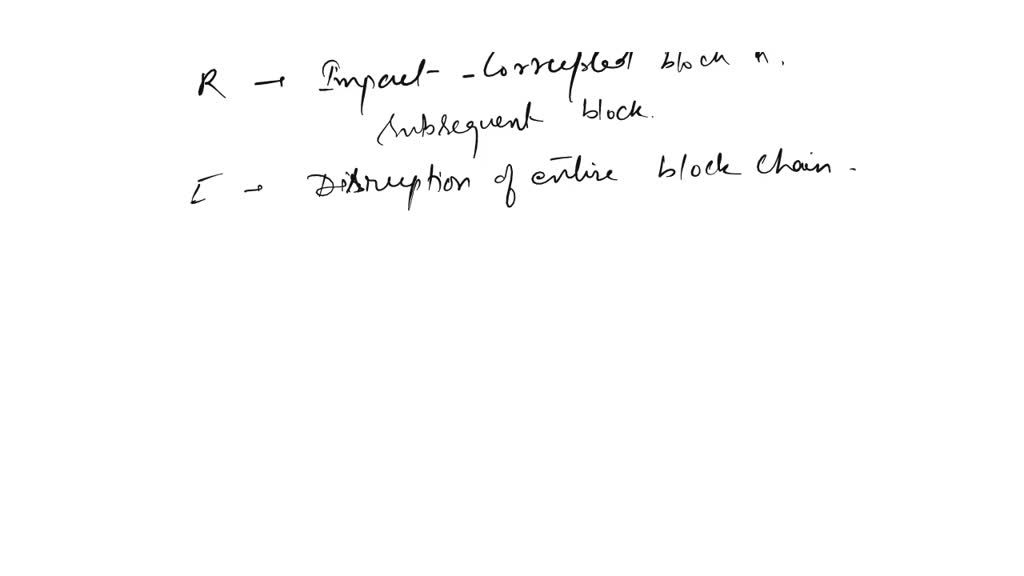 R → Impact - Corrupted block n.
subsequent block.
I → Disruption of entire block chain.